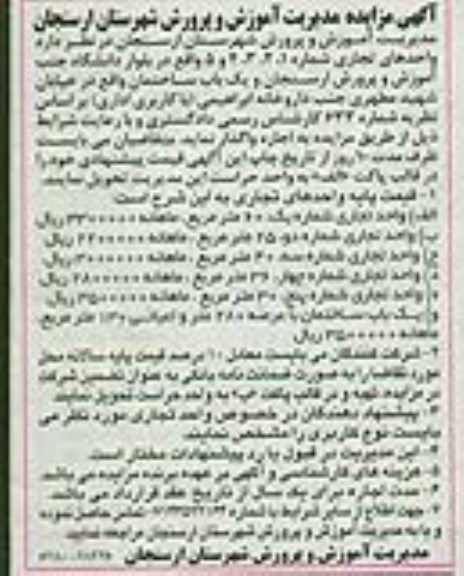 آگهی مزایده مدیریت آموزش و پرورش شهرستان ارسنجان
مدیریت آموزش و پرورش شهرستان ارسنجان در نظر دارد
واحدهای تجاری شماره ۱، ۲، ۳، ۴ و ۵ واقع در بلوار دانشگاه جنب
آموزش و پرورش ارسنجان و یک باب ساختمان واقع در خیابان
شهید مطهری جنب داروخانه ابراهیمی (با کاربری اداری) بر اساس
نظریه شماره ۶۴۳ کارشناس رسمی دادگستری و با رعایت شرایط
ذیل از طریق مزایده به اجاره واگذار نماید. متقاضیان می بایست
ظرف مدت ۱۰ روز از تاریخ چاپ این آگهی قیمت پیشنهادی خود را
در قالب پاکت «الف» به واحد حراست این مدیریت تحویل نمایند.
۱- قیمت پایه واحدهای تجاری به این شرح است:
الف) واحد تجاری شماره یک، ۶۰ متر مربع، ماهانه ۳۳۰۰۰۰۰ ریال
ب) واحد تجاری شماره دو، ۲۵ متر مربع، ماهانه ۲۲۰۰۰۰۰ ریال
ج) واحد تجاری شماره سه، ۴۰ متر مربع، ماهانه ۳۰۰۰۰۰۰ ریال
د) واحد تجاری شماره چهار، ۳۶ متر مربع، ماهانه ۲۸۰۰۰۰۰ ریال
ه) واحد تجاری شماره پنج، ۳۰ متر مربع، ماهانه ۳۵۰۰۰۰۰ ریال
و) یک باب ساختمان با عرصه ۲۸۰ متر و اعیانی ۱۳۰ متر مربع،
ماهانه ۳۵۰۰۰۰۰ ریال
۲- شرکت کنندگان می بایست معادل ۱۰ درصد قیمت پایه سالانه محل
مورد تقاضا را به صورت ضمانت نامه بانکی به عنوان تضمین شرکت
در مزایده، تهیه و در قالب پاکت «ب» به واحد حراست تحویل نمایند.
۳- پیشنهاد دهندگان در خصوص واحد تجاری مورد نظر می
بایست نوع کاربری را مشخص نمایند.
۴- این مدیریت در قبول یا رد پیشنهادات مختار است.
۵- هزینه های کارشناسی و آگهی بر عهده برنده مزایده می باشد.
۶- مدت اجاره برای یک سال از تاریخ عقد قرارداد می باشد.
۷- جهت اطلاع از سایر شرایط با شماره تماس حاصل نموده
و یا به مدیریت آموزش و پرورش شهرستان ارسنجان مراجعه نمایند.
مدیریت آموزش و پرورش شهرستان ارسنجان